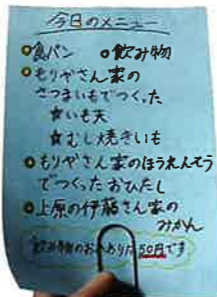 今日のメニュー
○食パン ○飲み物
○もりやさん家の
さつまいもでつくった
★いも天
★むし焼きいも
○もりやさん家のほうれんそう
でつくったおひたし
○上原の伊藤さん家の
みかん
飲み物のおかわりは50円です